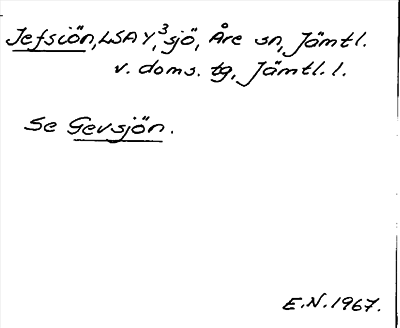 Jefsiön, LSA Y,³ sjö, Åre sn, Jämtl.
v. doms. tg, Jämtl. l.
Se Gevsjön.
E.N. 1967.